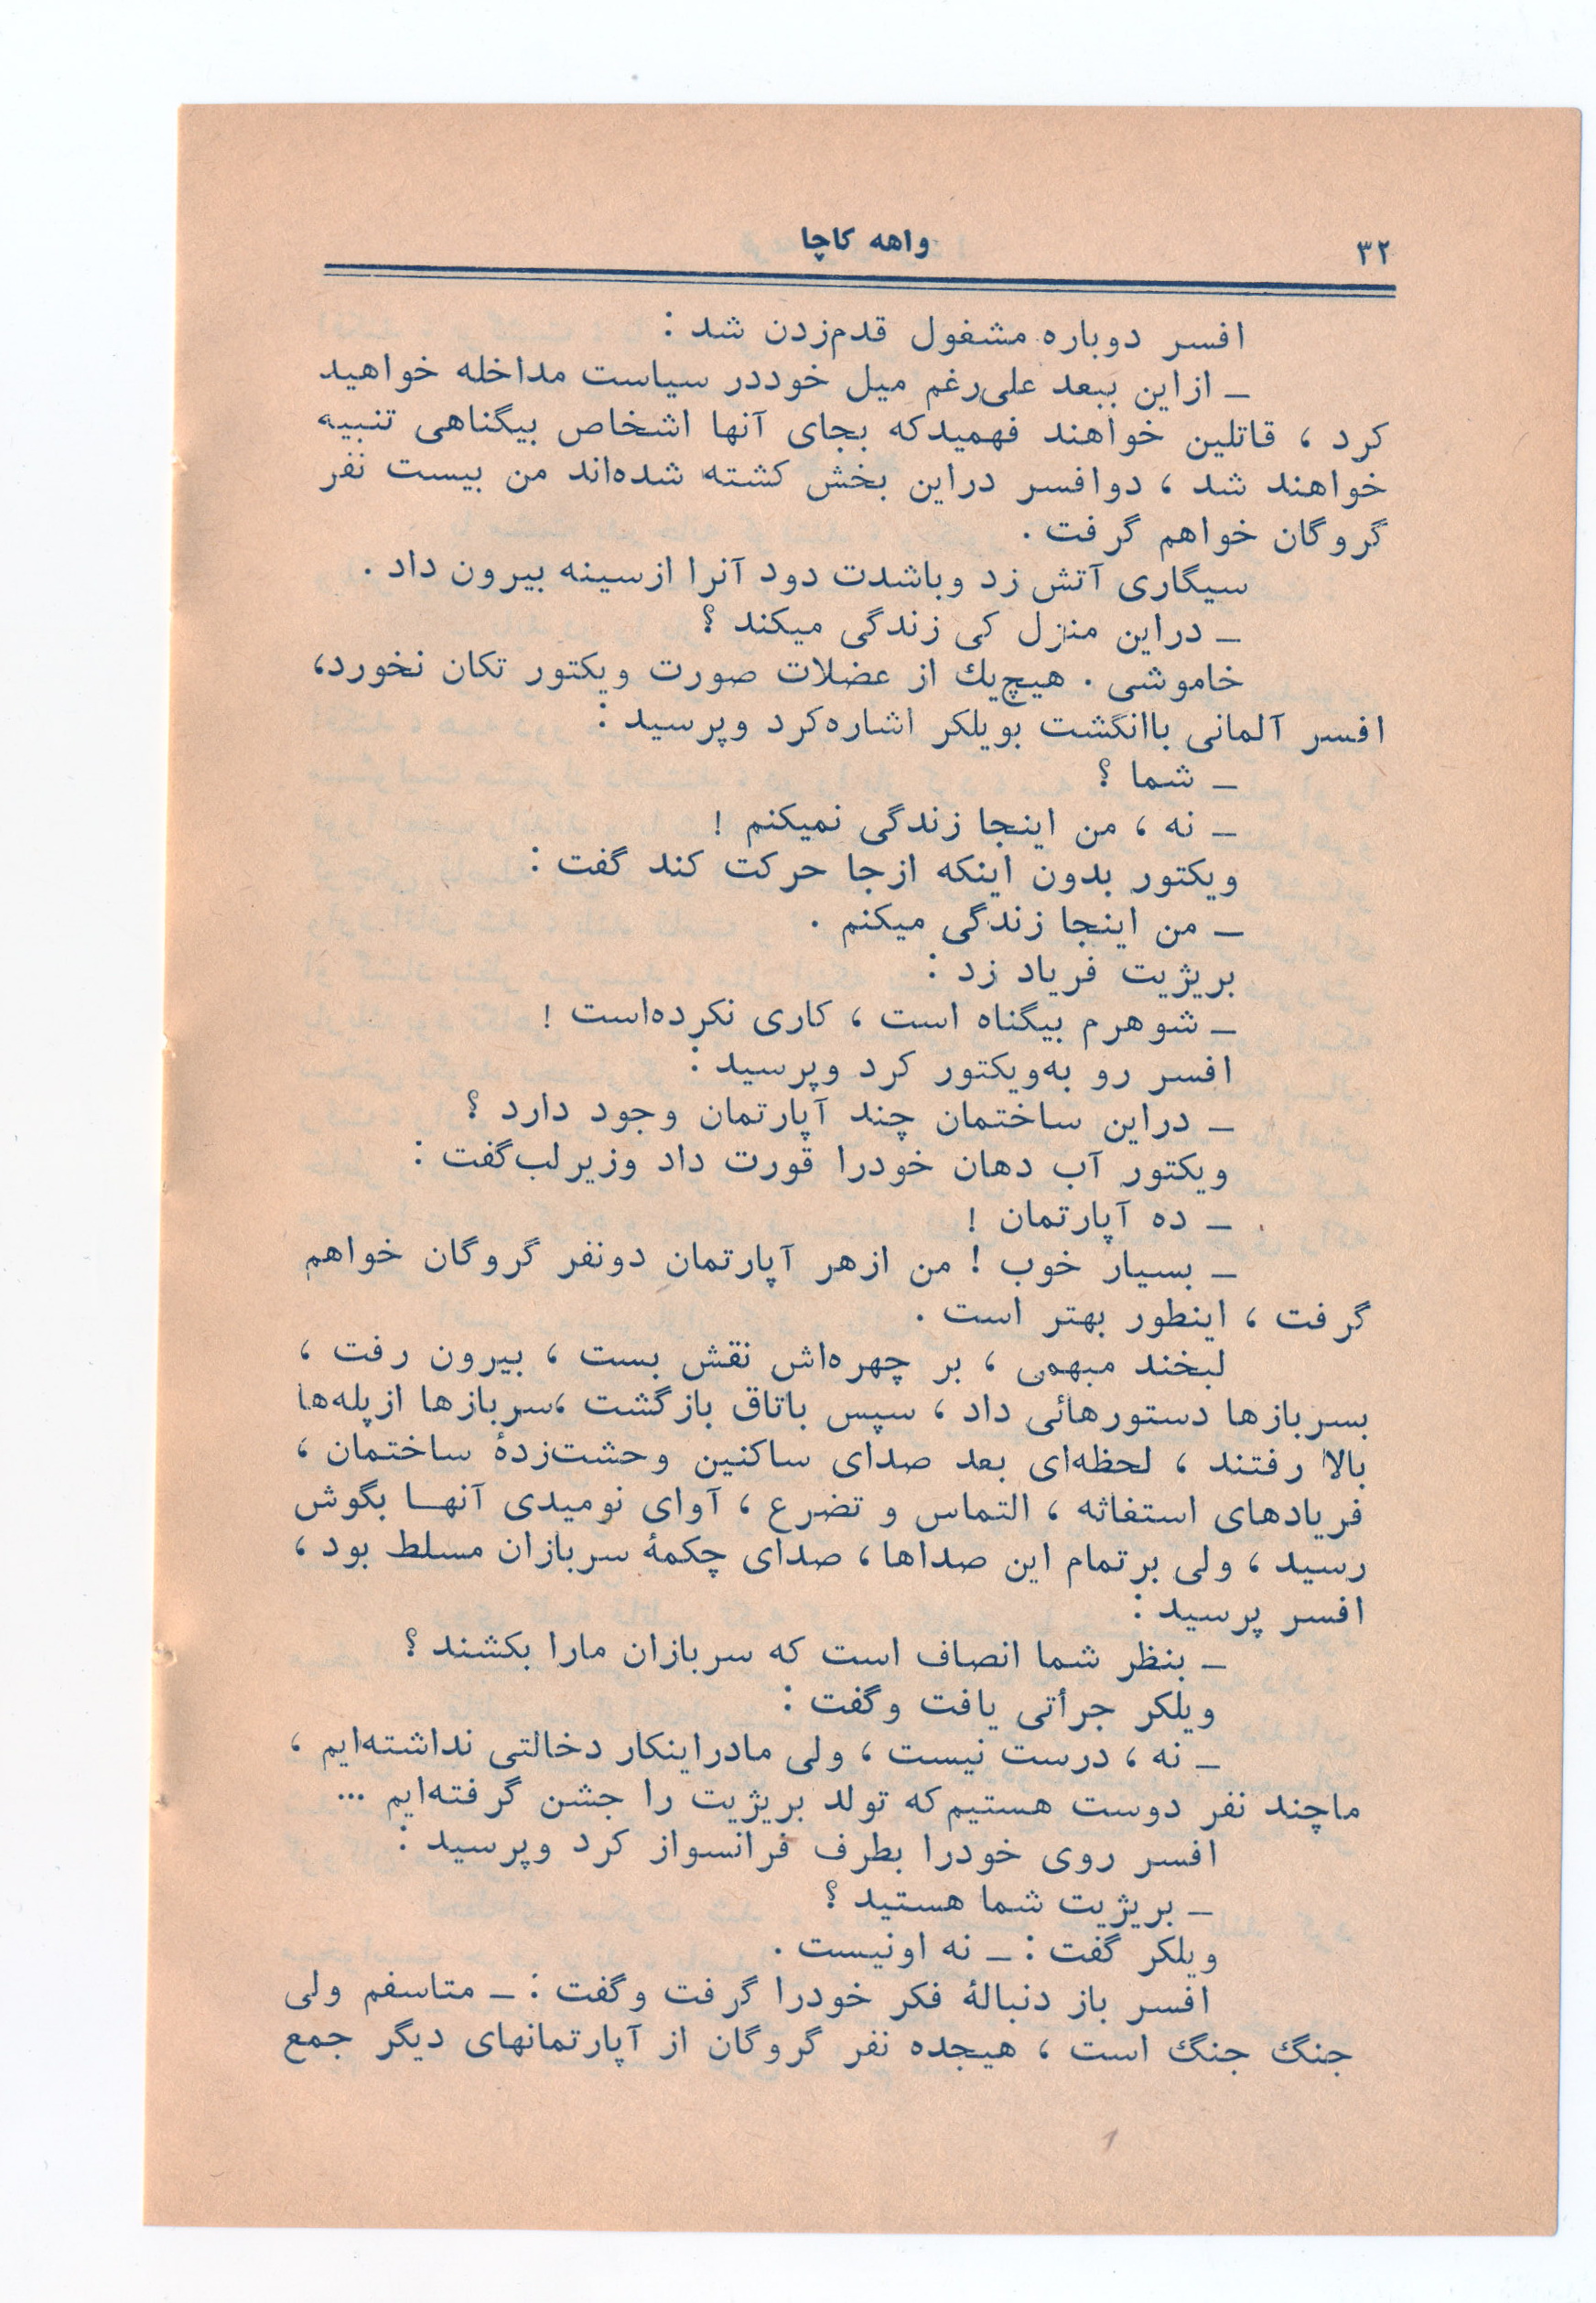 ۳۲
واهه کاچا
افسر دوباره مشغول قدم‌زدن شد :
ـ ازاین ببعد علی‌رغم میل خوددر سیاست مداخله خواهید
کرد ، قاتلین خواهند فهمیدکه بجای آنها اشخاص بیگناهی تنبیه
خواهند شد ، دوافسر دراین بخش کشته شده‌اند من بیست نفر
گروگان خواهم گرفت .
سیگاری آتش زد وباشدت دود آنرا ازسینه بیرون داد .
ـ دراین منزل کی زندگی میکند ؟
خاموشی . هیچ‌یك از عضلات صورت ویکتور تکان نخورد،
افسر آلمانی باانگشت بویلکر اشاره‌کرد وپرسید :
ـ شما ؟
ـ نه ، من اینجا زندگی نمیکنم !
ویکتور بدون اینکه ازجا حرکت کند گفت :
ـ من اینجا زندگی میکنم .
بریژیت فریاد زد :
ـ شوهرم بیگناه است ، کاری نکرده‌است !
افسر رو به‌ویکتور کرد وپرسید :
ـ دراین ساختمان چند آپارتمان وجود دارد ؟
ویکتور آب دهان خودرا قورت داد وزیرلب‌گفت :
ـ ده آپارتمان !
ـ بسیار خوب ! من ازهر آپارتمان دونفر گروگان خواهم
گرفت ، اینطور بهتر است .
لبخند مبهمی ، بر چهره‌اش نقش بست ، بیرون رفت ،
بسربازها دستورهائی داد ، سپس باتاق بازگشت ،سربازها ازپله‌ها
بالا رفتند ، لحظه‌ای بعد صدای ساکنین وحشت‌زدهٔ ساختمان ،
فریادهای استغاثه ، التماس و تضرع ، آوای نومیدی آنهـا بگوش
رسید ، ولی برتمام این صداها ، صدای چکمهٔ سربازان مسلط بود ،
افسر پرسید :
ـ بنظر شما انصاف است که سربازان مارا بکشند ؟
ویلکر جرأتی یافت وگفت :
ـ نه ، درست نیست ، ولی مادراینکار دخالتی نداشته‌ایم ،
ماچند نفر دوست هستیم‌که تولد بریژیت را جشن گرفته‌ایم ...
افسر روی خودرا بطرف فرانسواز کرد وپرسید :
ـ بریژیت شما هستید ؟
ویلکر گفت : ـ نه اونیست .
افسر باز دنبالهٔ فکر خودرا گرفت وگفت : ـ متاسفم ولی
جنگ جنگ است ، هیجده نفر گروگان از آپارتمانهای دیگر جمع